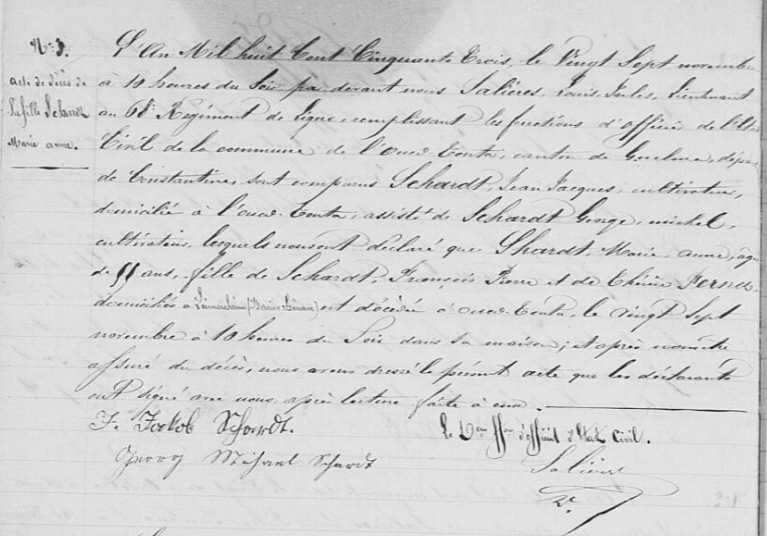 N° 3.
acte de décès de
la fille Schardt
Marie anne.
L'An Mil huit Cent Cinquante Trois, le Vingt Sept novembre
à 10 heures du Soir par devant nous Salières, Louis Jules, Lieutenant
au 68e Régiment de ligne, remplissant les fonctions d'officier de l'Etat
Civil de la commune de l'oued-Touta, canton de Guelma,
de Constantine, sont comparus Schardt, Jean Jacques, cultivateur,
domicilié à l'oued-Touta, assisté de Schardt George, michel,
cultivateur, lesquels nous ont déclaré que Shardt, Marie, anne,
de 11 ans, fille de Schardt, François Pierre et de
domiciliés à est décédée à oued-Touta, le vingt Sept
novembre à 10 heures du Soir dans sa maison; et après
assuré du décès, nous avons dressé le présent acte que les déclarants
ont signé avec nous après lecture faite à eux.
J. Jakob Schardt.
Georg Michael Schardt
Le d'officier d'Etat civil.
Salières